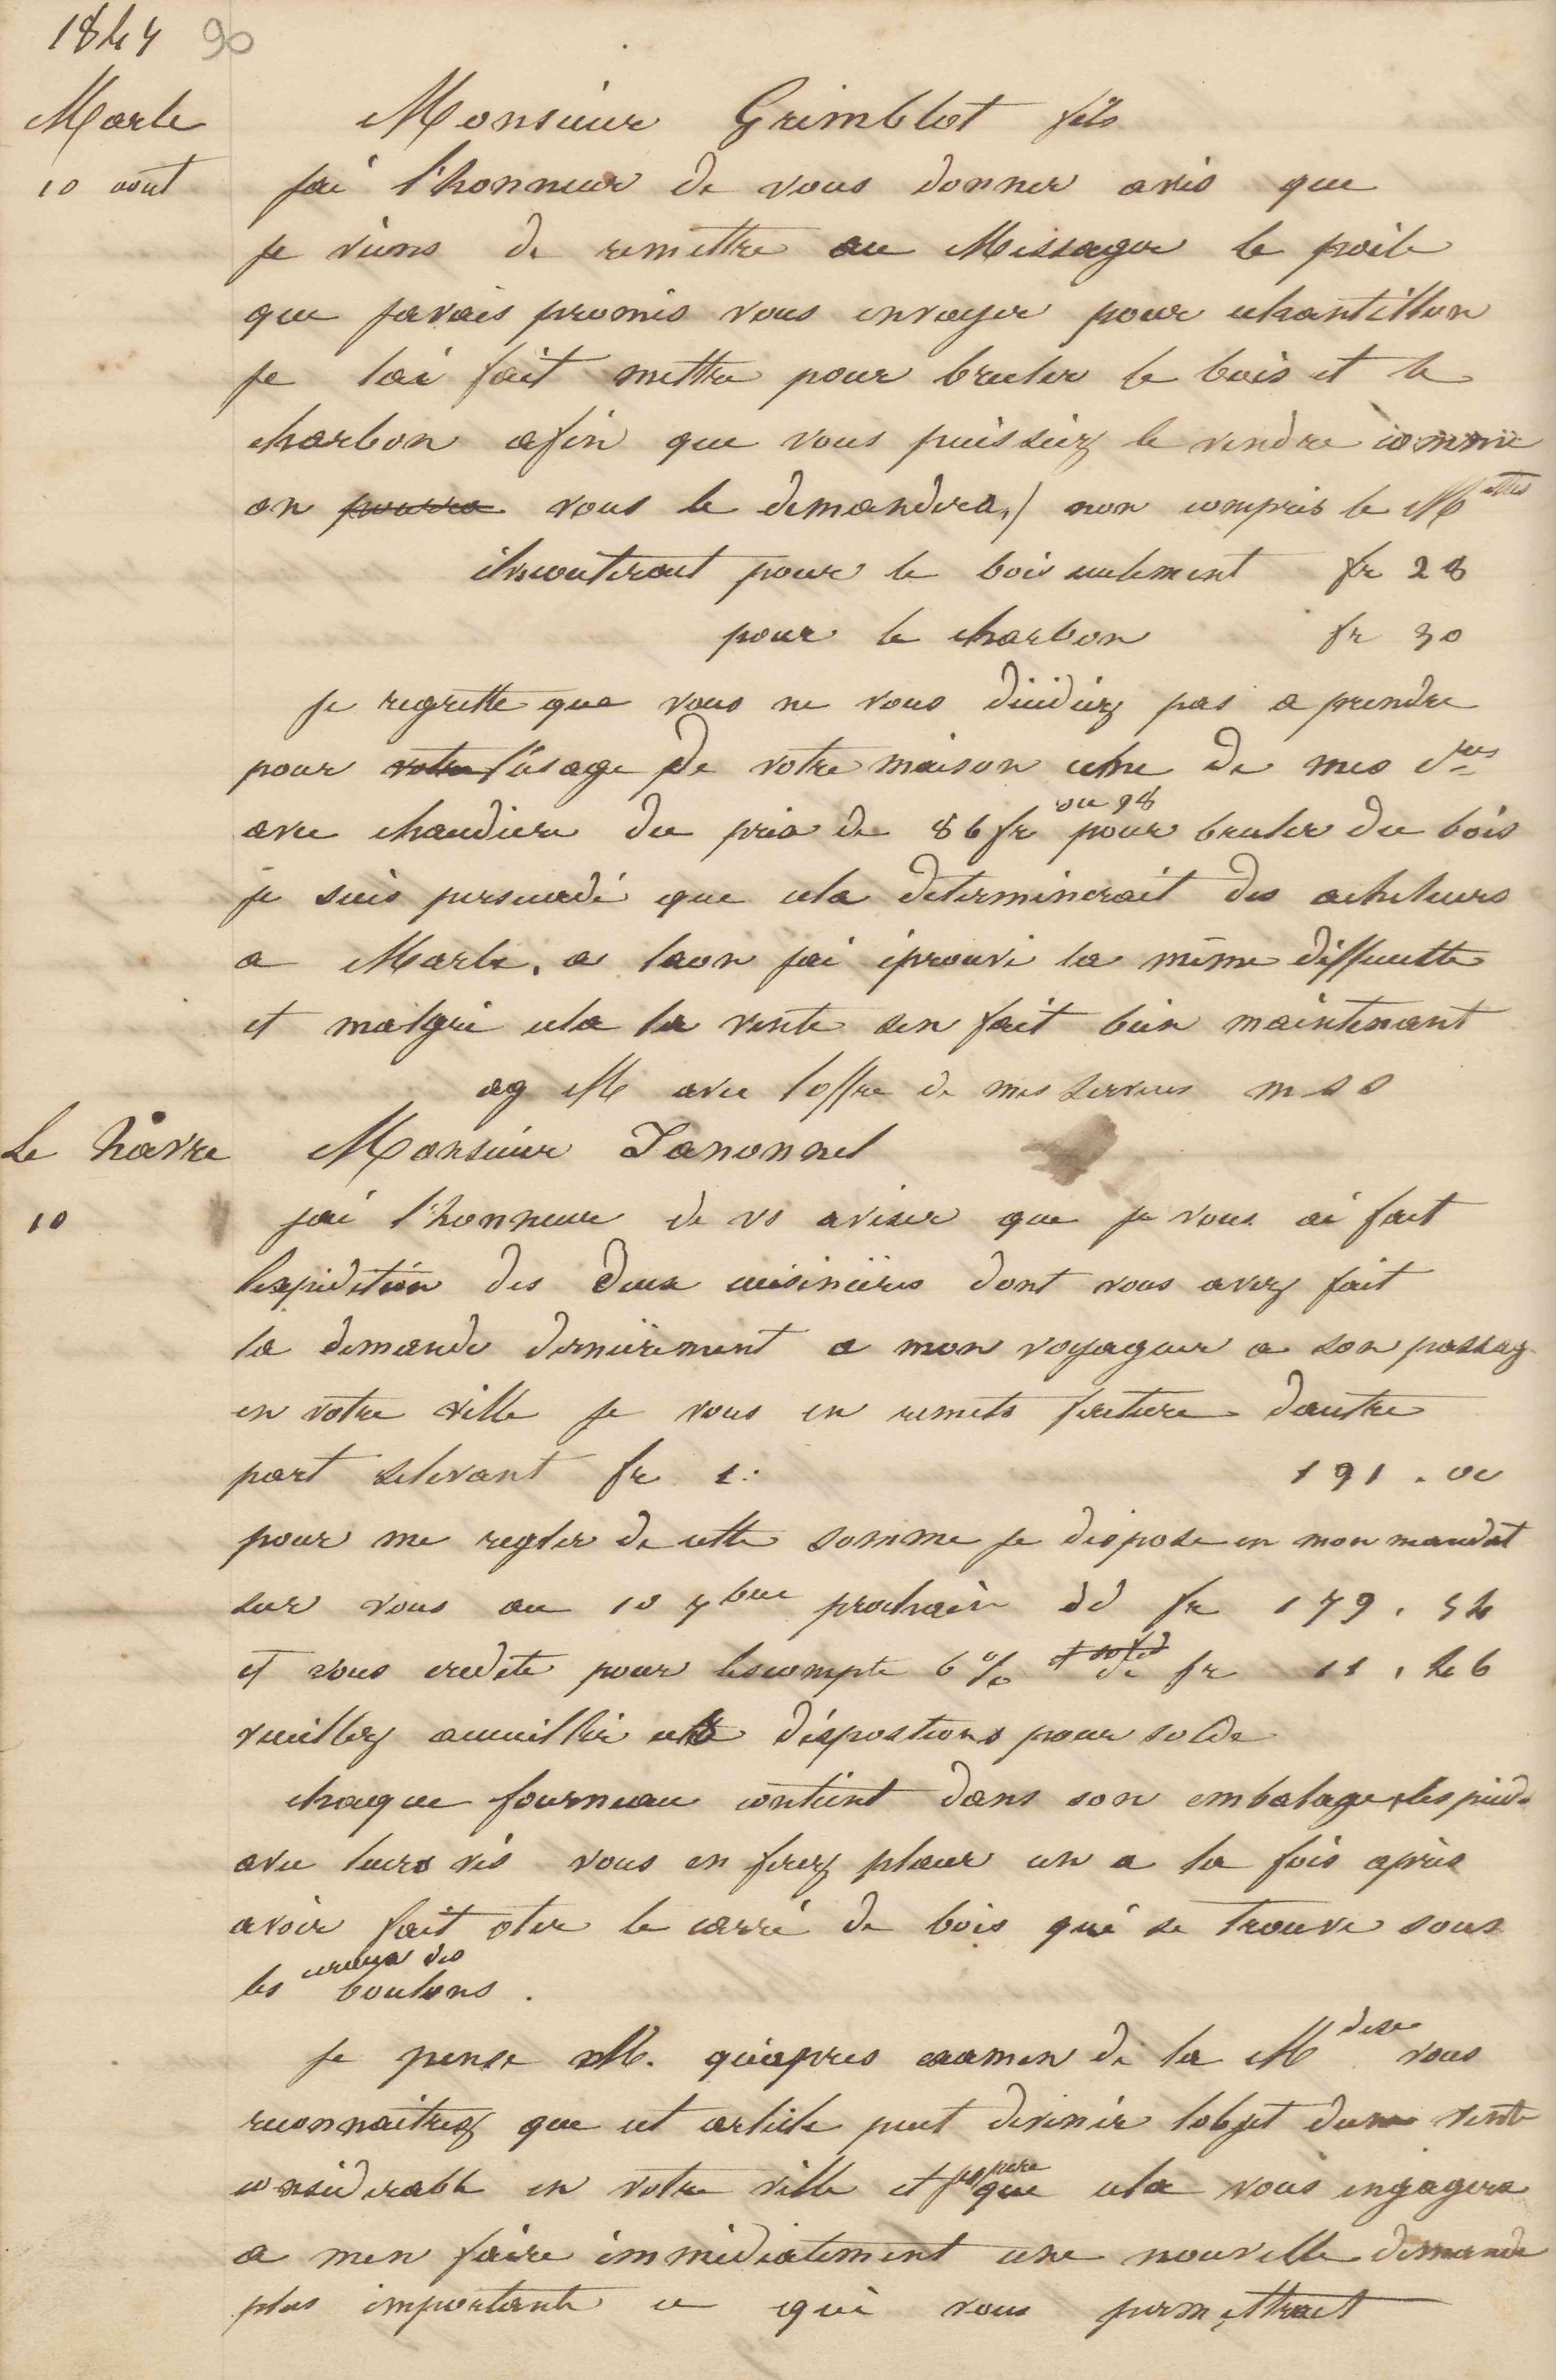 1844 90
Marle
10 aout
Monsieur Grimblot fils
jai l'honneur de vous donner avis que
je viens de remettre au Messager le poile
que javais promis vous envoyer pour echantillon
je lai fait mettre pour bruler le bois et le
charbon afin que vous puissiez le vendre comme
on pourra vous le demandera, / non compris le M
ils couteront pour le bois seulement fr 28
pour le charbon fr 30
je regrette que vous ne vous décidiez pas a prendre
pour votre l'usage de votre maison une de mes
avec chaudiere du prix de 86 fr ou 98 pour bruler du bois
je suis persuadé que cela determinerait des acheteurs
a Marle, a laon jai éprouvé la même difficulte
et malgré cela la vente sen fait bien maintenant
ag M avec loffre de mes services m s s
Le hâvre
10
Monsieur Janonnel
jai l'honneur de vs aviser que je vous ai fait
lexpedition des deux cuisinières dont vous avez fait
la demande dernièrement a mon voyageur a son passag
en votre ville je vous en remets facture dautre
part selevant fr 191 . 00
pour me regler de cette somme je dispose en mon mandat
sur vous au 10 7bre prochain dd fr 179 . 54
et vous credite pour lescompte 6 % de fr 11 . 46
veuillez accueillir cette dispostions pour solde
chaque fourneau contient dans son embalage les pieds
avec leurs vis vous en ferez placer un a la fois après
avoir fait oter le carré de bois qui se trouve sous
les ecroux des boulons .
je pense M. qu'apres examen de la Mdise vous
reconnaitrez que cet article peut devenir lobjet dune vente
considerable en votre ville et que cela vous engagera
a men faire immédiatement une nouvelle demande
plus importante ce qui vous permettrait